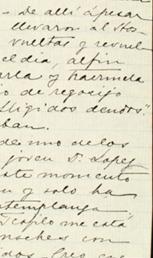 - De allí á pesar
llevaron al Hos-
vueltas y revuel
el dia, al fin
arla y haciendo
io de regocijo
lligidos deudos"
ban.
de uno de los
joven D. Lopez
este momento
n y solo ha
templanza"
Coplo me está
noches con
dos